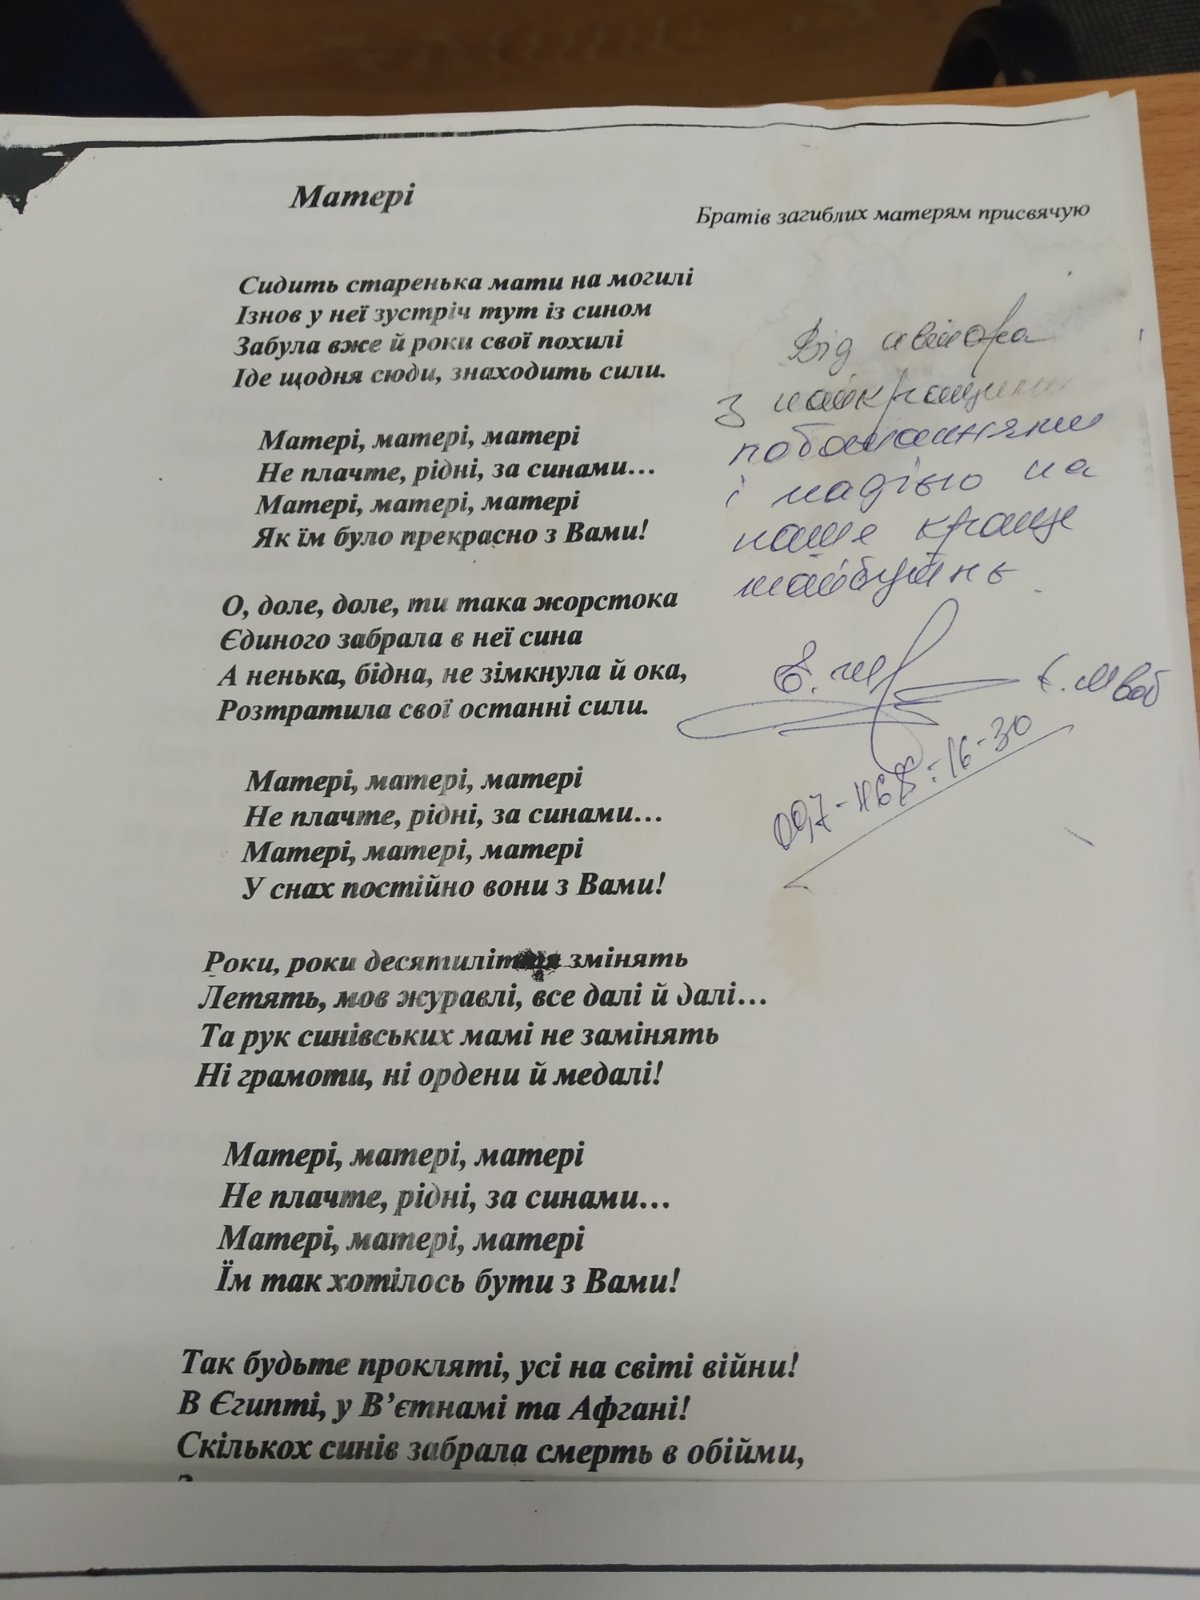 Матері
Братів загиблих матерям присвячую
Сидить старенька мати на могилі
Ізнов у неї зустріч тут із сином
Забула вже й роки свої похилі
Іде щодня сюди, знаходить сили.
Матері, матері, матері
Не плачте, рідні, за синами…
Матері, матері, матері
Як їм було прекрасно з Вами!
О, доле, доле, ти така жорстока
Єдиного забрала в неї сина
А ненька, бідна, не зімкнула й ока,
Розтратила свої останні сили.
Матері, матері, матері
Не плачте, рідні, за синами…
Матері, матері, матері
У снах постійно вони з Вами!
Роки, роки десятиліття змінять
Летять, мов журавлі, все далі й далі…
Та рук синівських мамі не замінять
Ні грамоти, ні ордени й медалі!
Матері, матері, матері
Не плачте, рідні, за синами…
Матері, матері, матері
Їм так хотілось бути з Вами!
Так будьте прокляті, усі на світі війни!
В Єгипті, у В’єтнамі та Афгані!
Скількох синів забрала смерть в обійми,
Від автора
з найкращими
побажаннями
і надією на
наше краще
майбутнє.
097-468-16-30